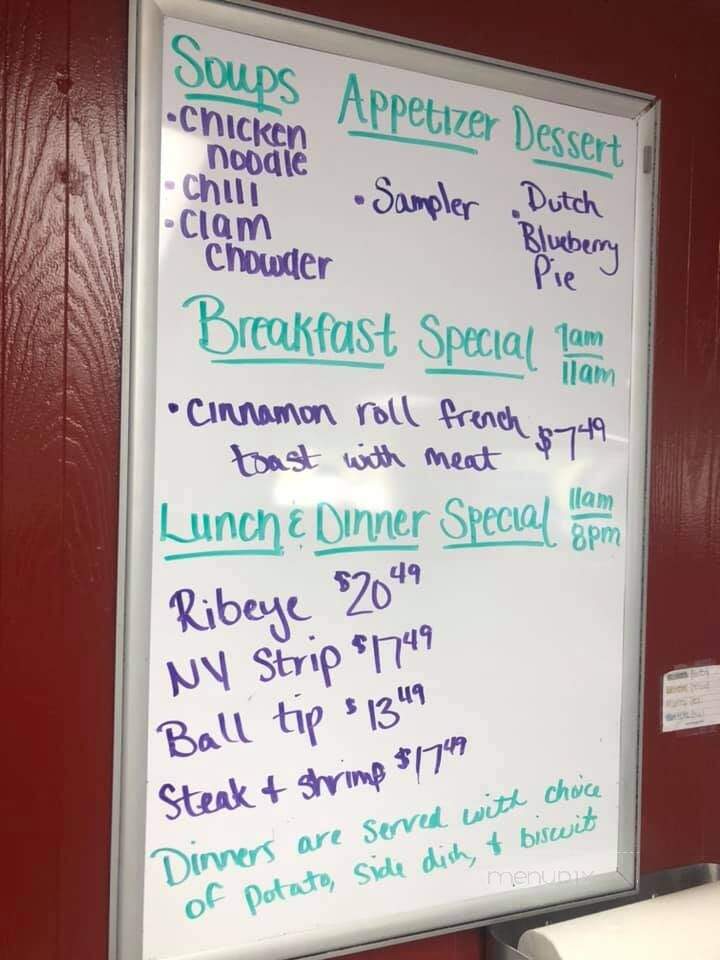 Soups
• Chicken
noodle
• Chili
• Clam
Chowder
Appetizer
• Sampler
Dessert
• Dutch
Blueberry
Pie
Breakfast Special 7am
11am
• Cinnamon roll french
toast with meat $7.49
Lunch & Dinner Special 11am
8pm
Ribeye $20.49
NY Strip $17.49
Ball tip $13.49
Steak + shrimp $17.49
Dinners are served with choice
of potato, side dish, + biscuit
menupix